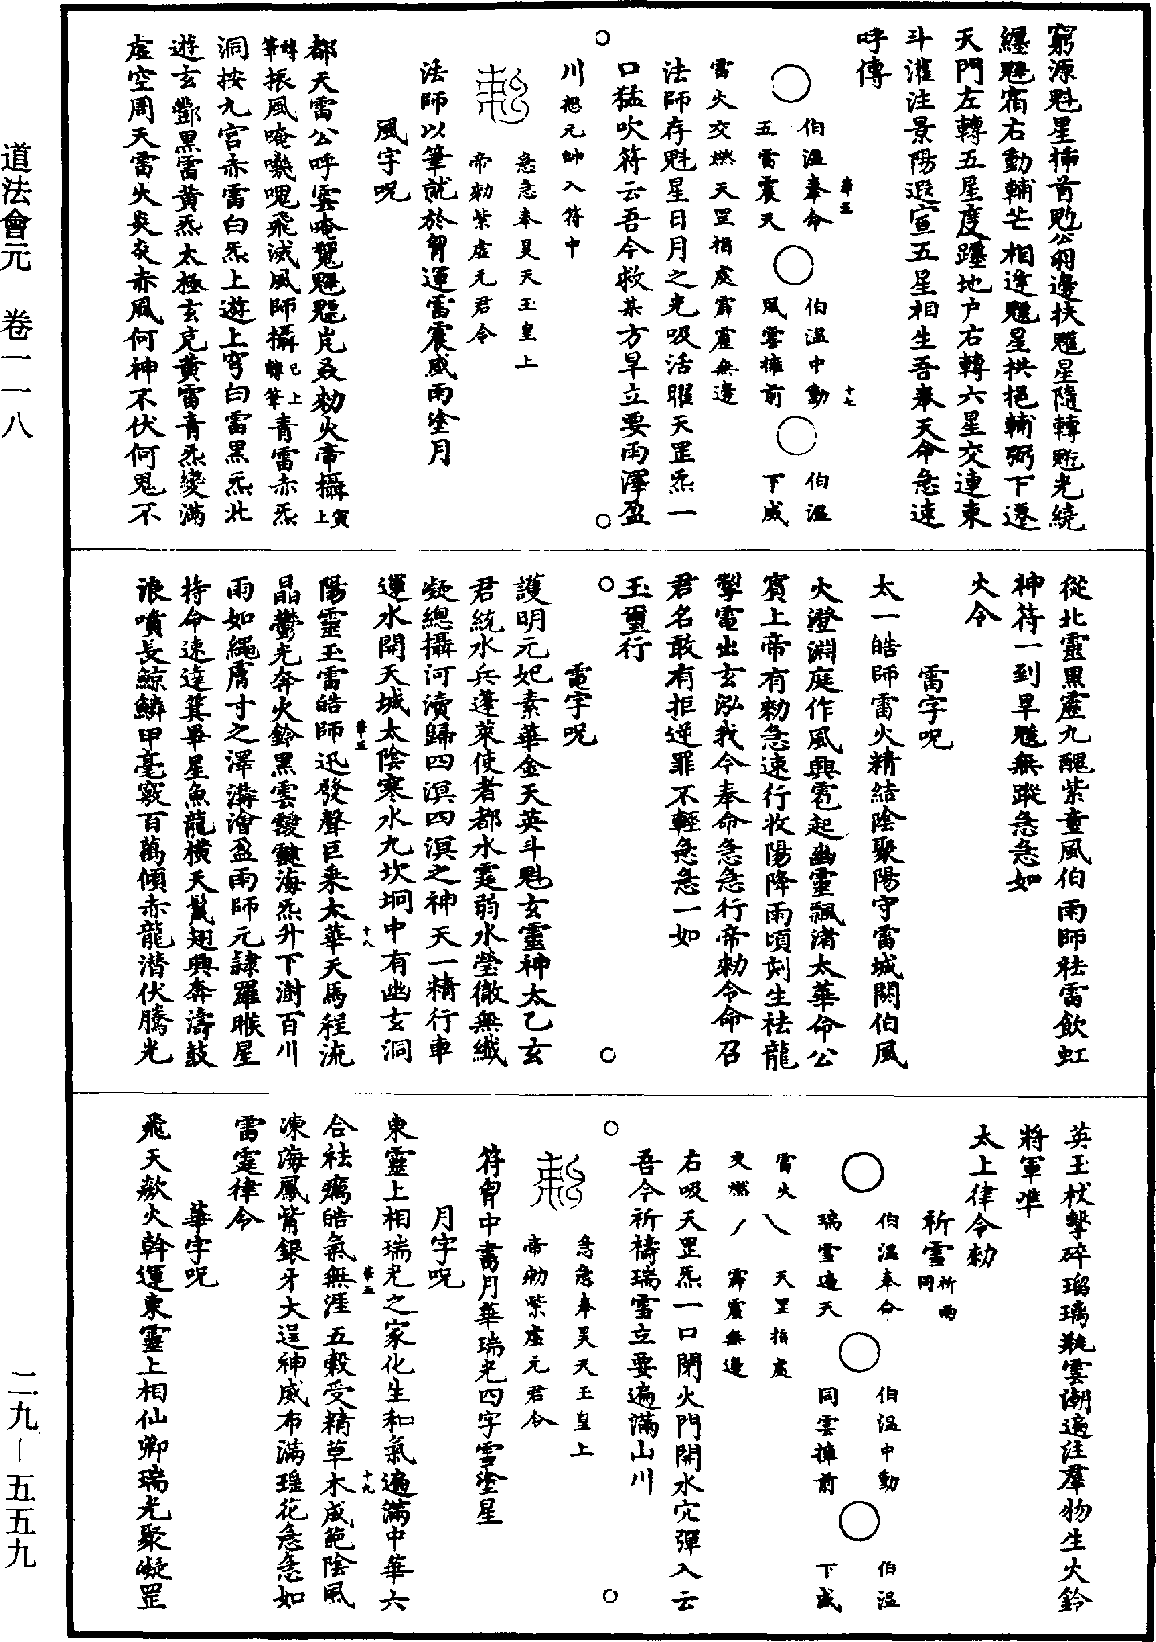 道法會元　卷一一八
二九—五五九
窮源魁星插首魓公翊邊扶魋星隨轉魓光繞
纏魁宿右動輔芒相逢魋星拱挹輔弼下遷
天門左轉五星度躔地户右轉六星交連東
斗灌注景陽遐宣五星相生吾奉天命急速
呼傳
伯温奉令　伯温中動　伯温
五雷震天　風雲擁前　下威
雷火交燃　天罡指處　霹靂無邊
法師存魁星日月之光吸活曜天罡炁一
口猛吹符云吾今救某方旱立要雨澤盈
川想元帥入符中
急急奉昊天玉皇上
帝勑紫虛元君令
法師以筆就於胷運雷震威雨塗月
風字呪
都天雷公呼雲唵
勑火帝攝
振風唵
飛滅風師攝
青雷赤炁
洞按九宮赤雷白炁上遊上穹白雷黑炁北
遊玄酆黑雷黄炁太極玄充黄雷青炁變滿
虛空周天雷火炎炎赤風何神不伏何鬼不
從北靈黑靈九醜紫童風伯雨師祛雷飲虹
神符一到旱魃無蹤急急如
火令
雷字呪
太一皓師雷火精結陰聚陽守雷城關伯風
火澄淵庭作風興雹起幽靈飄渚太華命公
賓上帝有勑急速行收陽降雨頃刻生祛龍
掣電出玄泓我今奉命急急行帝勑令命召
君名敢有拒逆罪不輕急急一如
玉璽行
雷字呪
護明元妃素華金天英斗魁玄靈神太乙玄
君統水兵蓬萊使者都水霆弱水瑩徹無纖
凝總攝河瀆歸四溟四溟之神天一精行車
運水開天城太陰寒水九坎坰中有幽玄洞
陽靈玉雷皓師迅發聲巨乘太華天馬程流
晶鬱光奔火鈴黑雲靉靆海炁升下澍百川
雨如繩膚寸之澤溝澮盈雨師元隷羅睺星
持令速達箕畢星魚龍橫天鬣翅興奔濤鼓
浪噴長鯨鱗甲毫竅百萬傾赤龍潜伏騰光
英王杖擊碎瑠璃瓶雲湖遍注羣物生火鈴
將軍準
太上律令勑
祈雪祈雨同
伯温奉命　伯温中動　伯温
瑞雪遍天　同雲擁前　下威
雷火　天罡指處
交燃　霹靂無邊
右吸天罡炁一口閉火門開水穴彈入云
吾今祈禱瑞雪立要遍滿山川
急急奉昊天玉皇上
帝勑紫虛元君令
符胷中書月華瑞光四字雪塗星
月字呪
東靈上相瑞光之家化生和氣遍滿中華六
合祛癘皓氣無涯五穀受精草木成葩陰風
凍海鳳觜銀牙大逞神威布滿瑶花急急如
雷霆律令
華字呪
飛天欻火斡運東靈上相仙卿瑞光聚凝罡